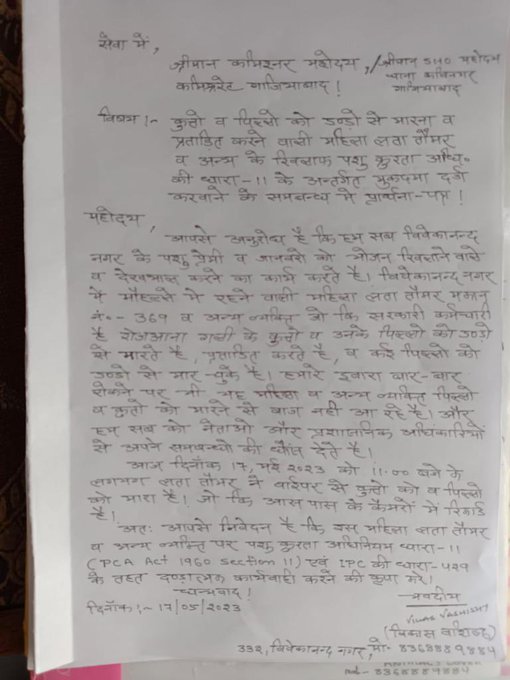 सेवा में,
श्रीमान कमिश्नर महोदय, / श्रीमान SHO महोदय
कमिश्नरेट गाजियाबाद ! थाना कविनगर
गाजियाबाद
विषय :- कुत्तो व पिल्लो को डण्डो से मारना व
प्रताडित करने वाली महिला लता तौमर
व अन्य के खिलाफ पशु क्रुरता अधि॰
की धारा-11 के अन्तर्गत मुकदमा दर्ज
करवाने के सम्बन्ध मे प्रार्थना-पत्र !
महोदय,
आपसे अनुरोध है कि हम सब विवेकानन्द
नगर के पशु प्रेमी व जानवरो को भोजन खिलाने वाले
व देखभाल करने का कार्य करते है। विवेकानन्द नगर
मे मौहल्ले मे रहने वाली महिला लता तौमर मकान
नं०- 369 व अन्य व्यक्ति जो कि सरकारी कर्मचारी
है रोजआना गली के कुत्तो व उनके पिल्लो को डण्डो
से मारते है, प्रताडित करते है, व कई पिल्लो को
डण्डो से मार चुके है। हमारे द्वारा बार-बार
रोकने पर भी यह महिला व अन्य व्यक्ति पिल्लो
व कुत्तो को मारने से बाज नही आ रहे है। और
हम सब को नेताओ और प्रशासनिक अधिकारियो
से अपने सम्बन्धो की धौंस देते है।
आज दिनाँक 17, मई 2023 को 11:00 बजे के
लगभग लता तौमर ने वाईपर से कुत्तो को व पिल्लो
को मारा है। जो कि आस पास के कैमरो मे रिकार्ड
है।
अतः आपसे निवेदन है कि इस महिला लता तौमर
व अन्य व्यक्ति पर पशु क्रुरता अधिनियम धारा-11
(PCA Act 1960 Section 11) एवं IPC की धारा-429
के तहत दण्डात्मक कार्यवाही करने की कृपा करे।
धन्यवाद !
भवदीय
दिनाँक :- 17/05/2023
VIKAS VASHISHT
(विकास वशिष्ठ)
332, विवेकानन्द नगर, मो०- 8368889884
mob- 8368889884